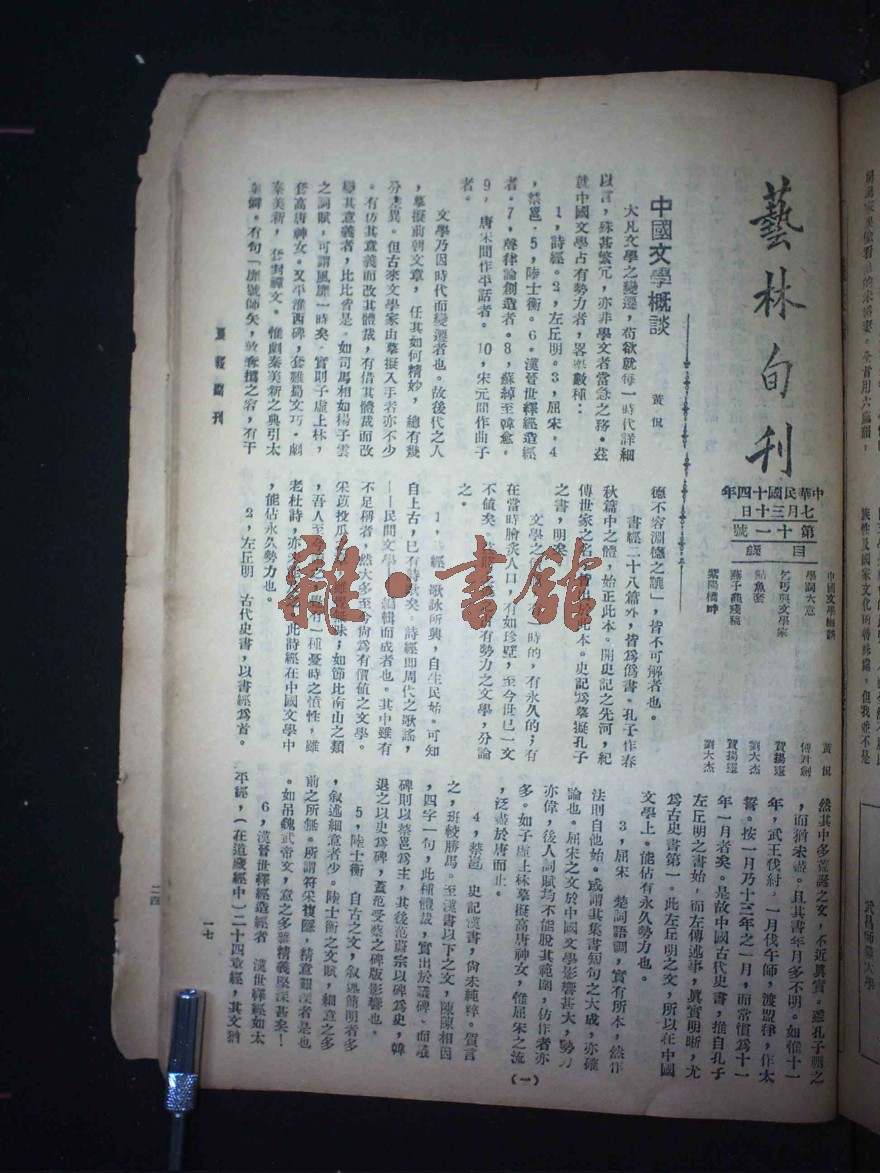 藝林旬刊
中華民國十四年
七月三十日
第十一號
目錄
中國文學概談 黃侃
學詞大意
乞丐與文學家 賀揚靈
鮎魚套 劉大杰
燕子龕殘稿 賀揚靈
紫陽橋畔 劉大杰
中國文學概談 黃侃
大凡文學之變遷,苟欲就每一時代詳細
以言,殊甚繁冗,亦非學文者當急之務。茲
就中國文學占有勢力者,畧舉數種:
1,詩經。2,左丘明。3,屈宋。4
,蔡邕。5,陸士衡。6。漢晉世釋經造經
者。7,聲律論創造者。8,蘇綽至韓愈。
9,唐宋間作平話者。10,宋元間作曲子
者。
文學乃因時代而變遷者也。故後代之人
,摹擬前朝文章,任其如何精妙,總有幾
分差異。但古來文學家由摹擬入手者亦不少
。有仿其意義而改其體裁,有借其體裁而改
變其意義者,比比皆是。如司馬相如楊子雲
之詞賦,可謂風靡一時矣。實則子虛上林,
套高唐神女。又平淮西碑,套難蜀文巧。劇
秦美新,套封禪文。惟劇秦美新之典引太
有句「
德不容淵懿之讓」,皆不可解者也。
書經二十八篇外,皆爲僞書。孔子作春
秋篇中之體,始正此本。開史記之先河,紀
傳世家之名
本。史記爲摹擬孔子
之書,明矣
文學之
一時的,有永久的;有
在當時膾炙人口,有如珍璧,至今世已一文
不値矣。
占有勢力之文學,分論
之。
1,
經 歌詠所興,自生民始。可知
自上古,已有詩歌矣。詩經即周代之歌謠,
——民間文學
編輯而成者也。其中雖有
不足稱者,然大多至今尙爲有價值之文學。
味;如節比南山之類
,吾人至今
有一種憂時之憤性,雖
老杜詩,亦
此詩經在中國文學中
,能佔永久勢力也。
2,左丘明 古代史書,以書經爲首。
然其中多荒誕之文,不近眞實。雖孔子刪之
,而猶未盡。且其書年月多不明。如惟十一
年,武王伐紂,一月伐午師,渡盟律,作太
誓。按一月乃十三年之一月,而常慣爲十一
年一月者矣。是故中國古代史書,推自孔子
左丘明之書始,而左傳述事,眞實明晰,尤
爲古史書第一。此左丘明之文,所以在中國
文學上。能佔有永久勢力也。
3,屈宋 楚詞語調,實有所本,然作
法則自他始。或謂其集書短句之大成,亦確
論也。屈宋之文於中國文學影響甚大,勢力
亦偉,後人詞賦均不能脫其範圍,仿作者亦
多。如子虛上林摹擬高唐神女,惟屈宋之流
,泛盡於唐而止。
4,蔡邕 史記漢書,尙未純粹。質言
之,班較勝馬。至漢書以下之文,陳陳相因
,四字一句,此種體裁,實出於議碑。而議
碑則以蔡邕爲主,其後范蔚宗以碑爲史,韓
退之以史爲碑,蓋范受蔡之碑版影響也。
5,陸士衡 自古之文,叙述簡明者多
,叙述細意者少。陸士衡之文賦,細意之多
前之所無。所謂符采複隱,精意艱深者是也
。如吊魏武帝文,意之多雜精義堅深甚矣!
6,漢晉世釋經造經者 漢世釋經如太
平經,(在道藏經中)二十四章經,其文猶
(一)
晨報副刊
二四
一七
雜·書館